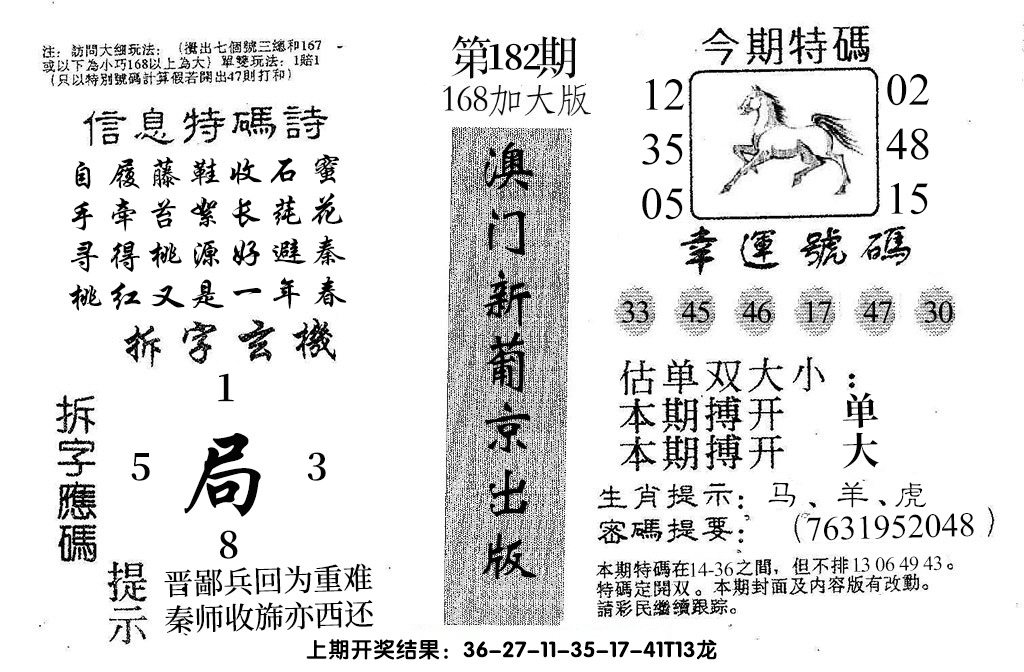 注：訪問大细玩法：（攪出七個號三總和167
或以下為小巧168以上為大）單雙玩法：1賠1
（只以特別號碼計算假若開出47則打和）
信息特碼詩
自履藤鞋收石蜜
手牵苔絮长莼花
寻得桃源好避秦
桃红又是一年春
拆字玄機
拆字應碼
1
5 局 3
8
提示
晋鄙兵回为重难
秦师收旆亦西还
第182期
168加大版
澳门新葡京出版
今期特碼
12 02
35 48
05 15
幸運號碼
33 45 46 17 47 30
估单双大小：
本期搏开 单
本期搏开 大
生肖提示：马、羊、虎
密碼提要：（7631952048）
本期特碼在14-36之間，但不排13 06 49 43。
特碼定開双。本期封面及内容版有改動。
請彩民繼續跟踪。
上期开奖结果：36-27-11-35-17-41T13龙